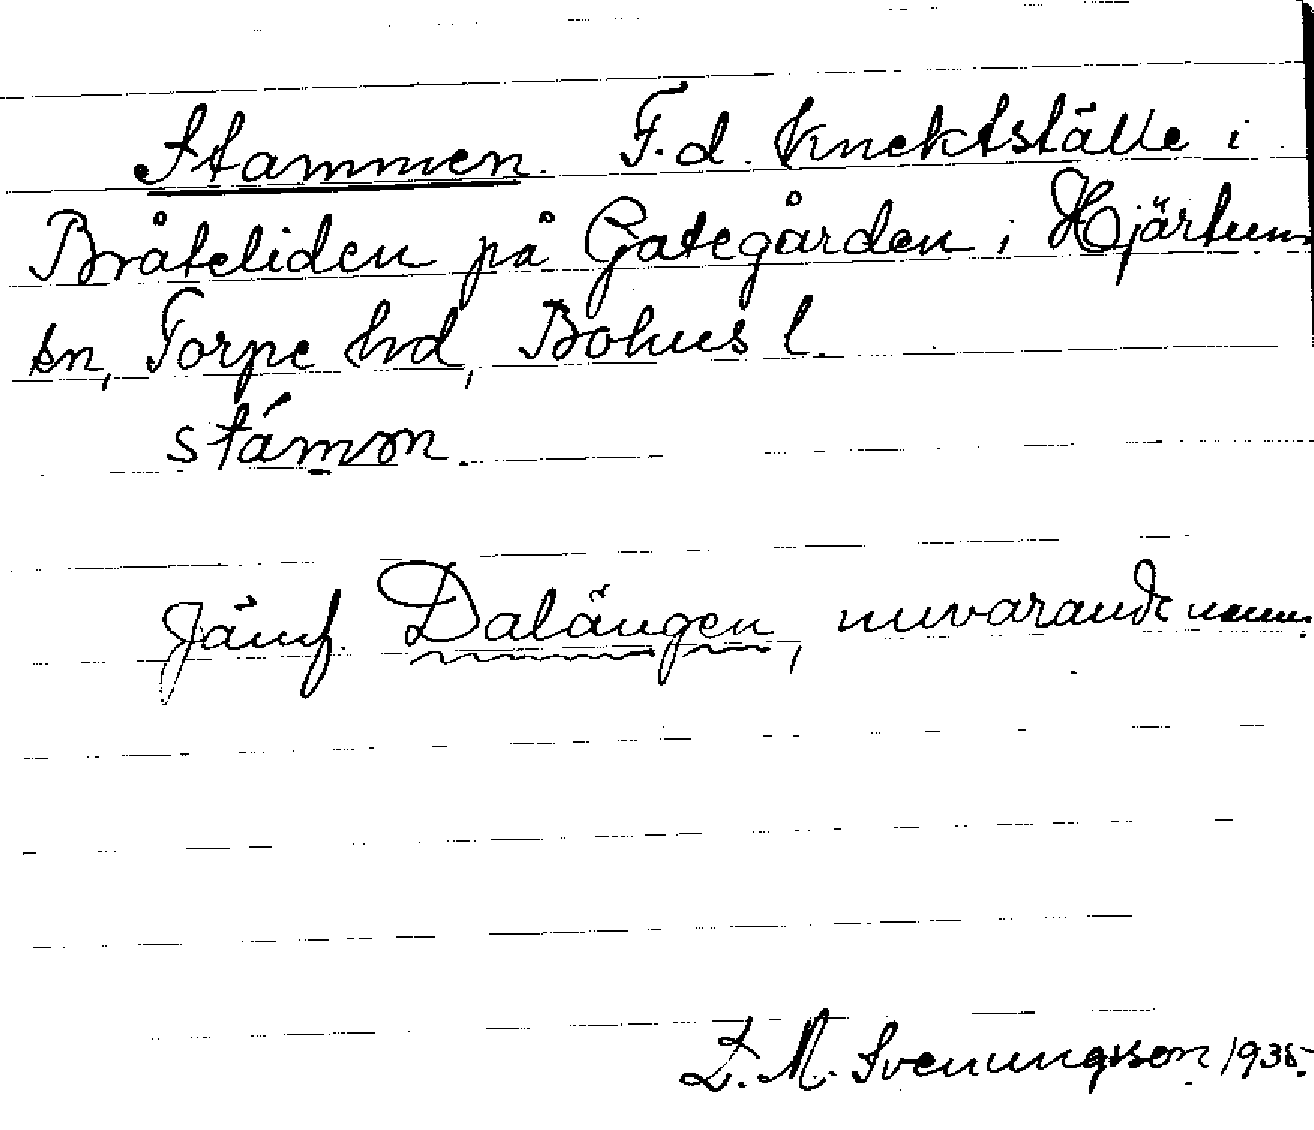 Stammen. F.d. knektställe i
Bråteliden på Gategården i Hjärtum
sn, Torpe hd, Bohus l.
stámon.
Jämf. Dalängen, nuvarande namn.
L. M. Svenungsson 1935.